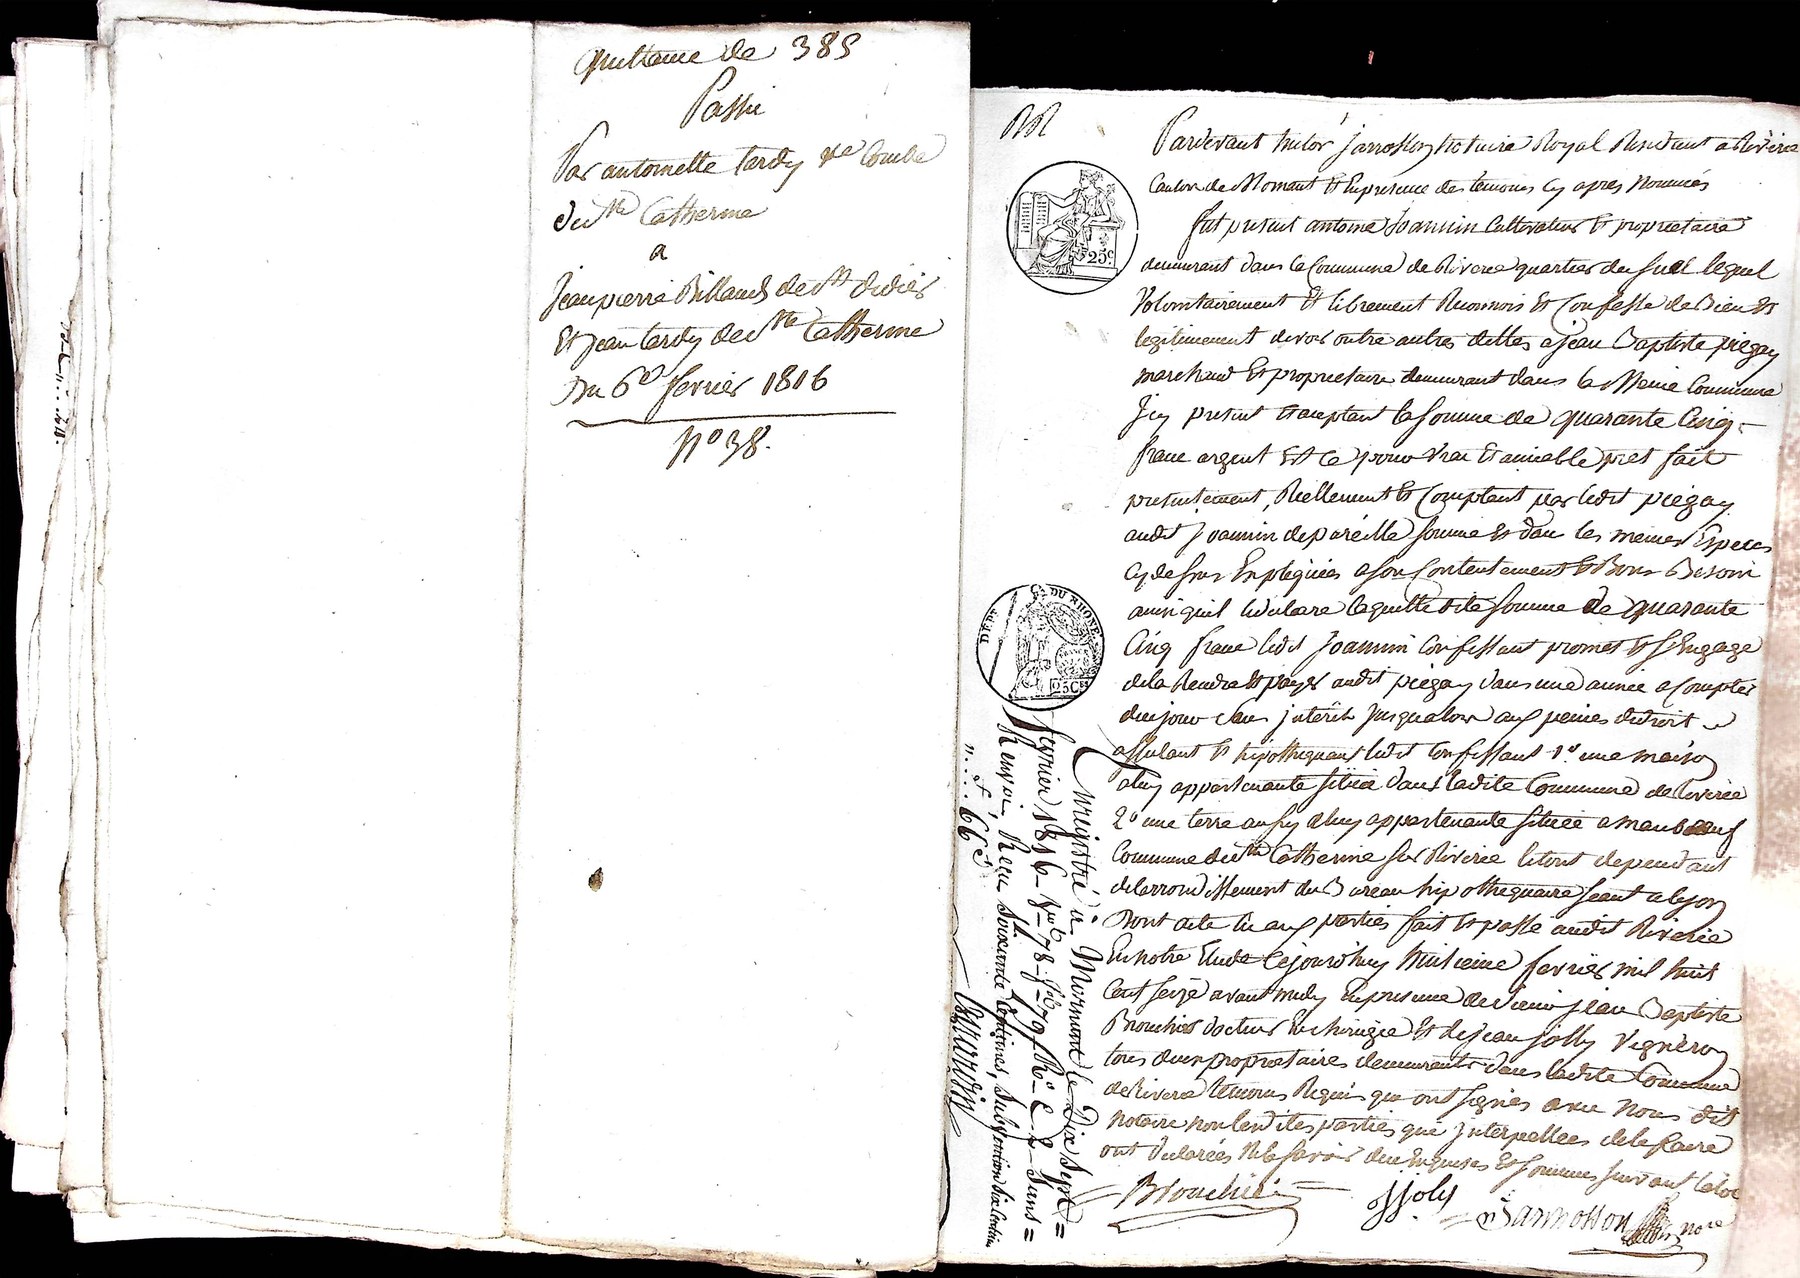 quittance de 385
Passée
Par antoinette tardy ve Combe
de Ste Catherine
a
Jean pierre Billaud de St didier
Et Jean tardy de Ste Catherine
Du 6e fevrier 1816
No 38.
Pardevant Jannosson Notaire Royal Residant a Riverie
Canton de Mornant Et En presence des temoins cy apres Nommés
fut present antoine Joannin Cultivateur Et proprietaire
demeurant dans la Commune de Riverie quartier du lequel
Volontairement Et librement Reconnois Et Confesse de Bien Et
legitimement devoir outre autres dettes a Jean Baptiste piegay
marchand Et proprietaire demeurant dans la Meme Commune
Icy present Et acceptant la Somme de quarante Cinq
franc argent Et Ce pour Vrai Et amiable pret fait
presentement, Reellement Et Comptant par ledit piegay
audit Joannin de pareille Somme Et dans les memes Especes
cy dessus Expliquées a Son Contentement Et Bons Besoin
ainsi quil le declare laquelle dite Somme de quarante
Cinq franc ledit Joannin Confessant promet Et S'Engage
de la Rendre Et payer audit piegay dans une année a Compter
du jour Sans interêt Jusqualors aux peines du droit
affectant Et hipothequant ledit Confessant 1o une maison
a luy appartenante Située dans ladite Commune de Riverie
2o une terre aussy a luy appartenante Située a
Commune de Ste Catherine Sur Riverie le tout dependant
de larrondissement du Bureau hipothequaire Seant a lyon
Dont acte lu aux parties fait Et passé audit Riverie
En notre Etude Cejourdhuy huitieme fevrier mil huit
Cent Seize avant midy En presence de Sieur Jean Baptiste
Brouchier docteur En chirurgie Et de Jean Jolly Vigneron
tous deux proprietaires demeurants dans ladite Commune
de Riverie temoins Requis qui ont Signés avec Nous dit
Notaire non lesdites parties que Interpellees de le faire
ont declarées Ne le Savoir de ce Enquises Et Sommées Suivant la loi
Jjoly
Jannosson nore
DÉPT. DU RHONE
25 Ces
25c.
Enregistré à Mornant le Dix Sept
fevrier 1816 Vo 78 Ro
Renvoi, Reçu Soixante Centimes, Subvention Six Centimes
66 c